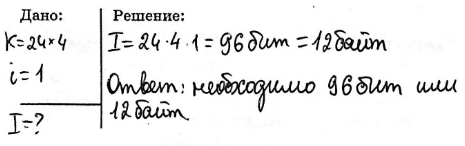 Дано:
K=24×4
i=1
I=?
Решение:
I=24·4·1=96бит=12байт
Ответ: необходимо 96бит или
12байт